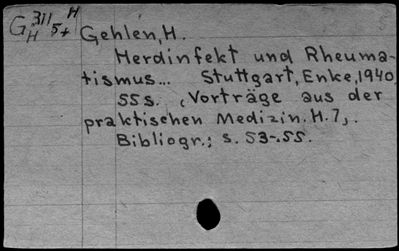 G 311 H
H 5+
Gehlen, H.
Herdinfekt und Rheuma-
tismus... Stuttgart, Enke, 1940
55 s. (Vorträge aus der
praktischen Medizin. H. 7).
Bibliogr.: s. 53-55.